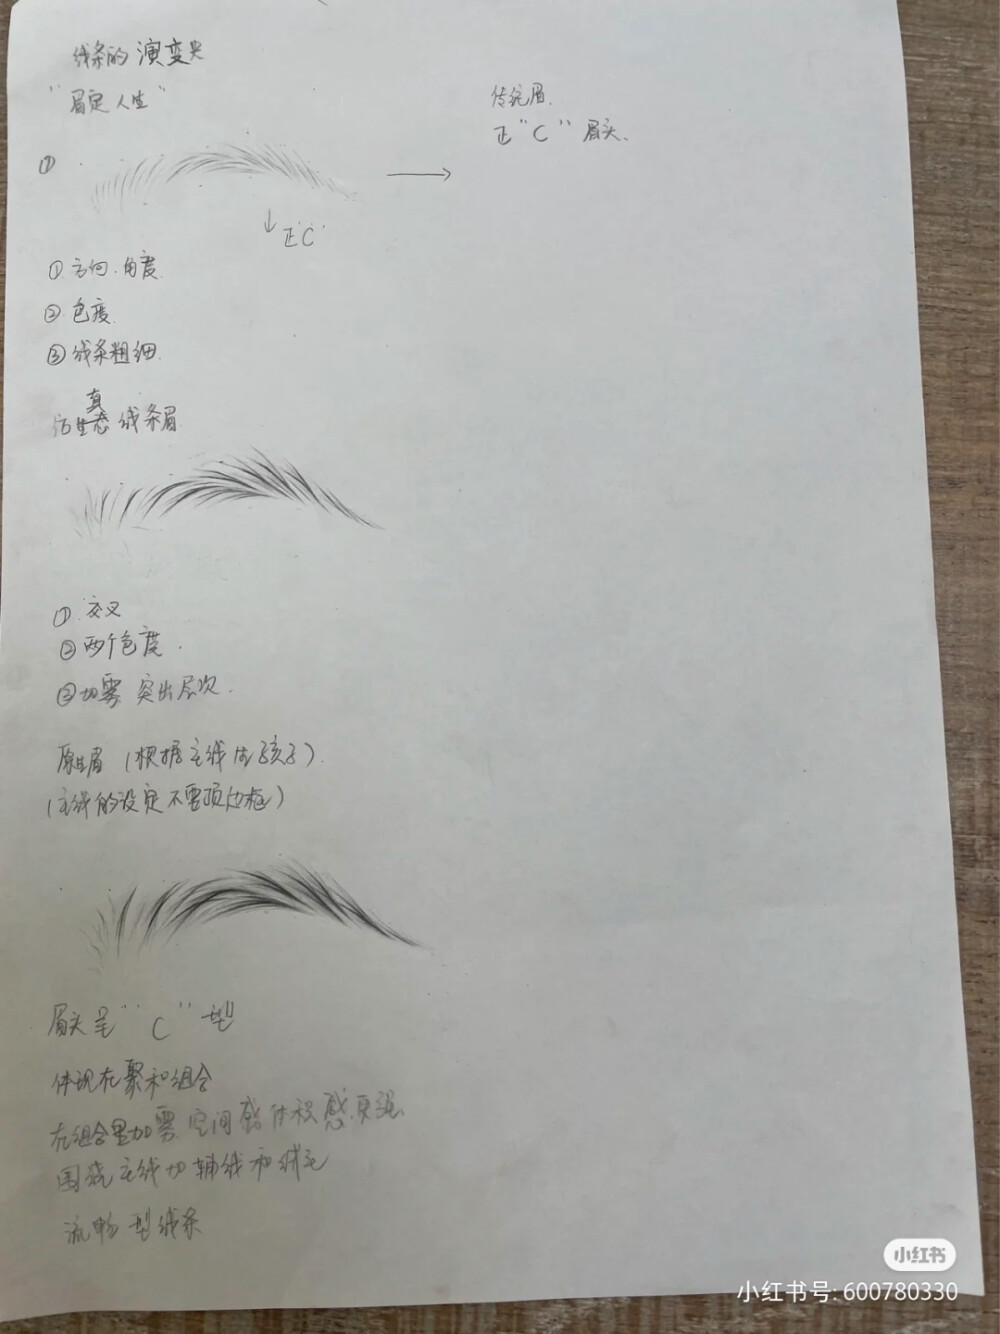 线条的演变史
"眉定人生"
传统眉.
正"C"眉头.
①
正"C"
① 方向.角度.
② 色度.
③ 线条粗细.
真
仿生态线条眉.
① 交叉
② 两个色度.
③ 加雾 突出层次.
原生眉(根据主线做孩子).
(主线的设定不需顶边框)
眉头呈"C"型
体现在聚和组合
在组合里加雾.空间感体积感更强.
围绕主线切辅线和绒毛
流畅型线条
小红书
小红书号: 600780330